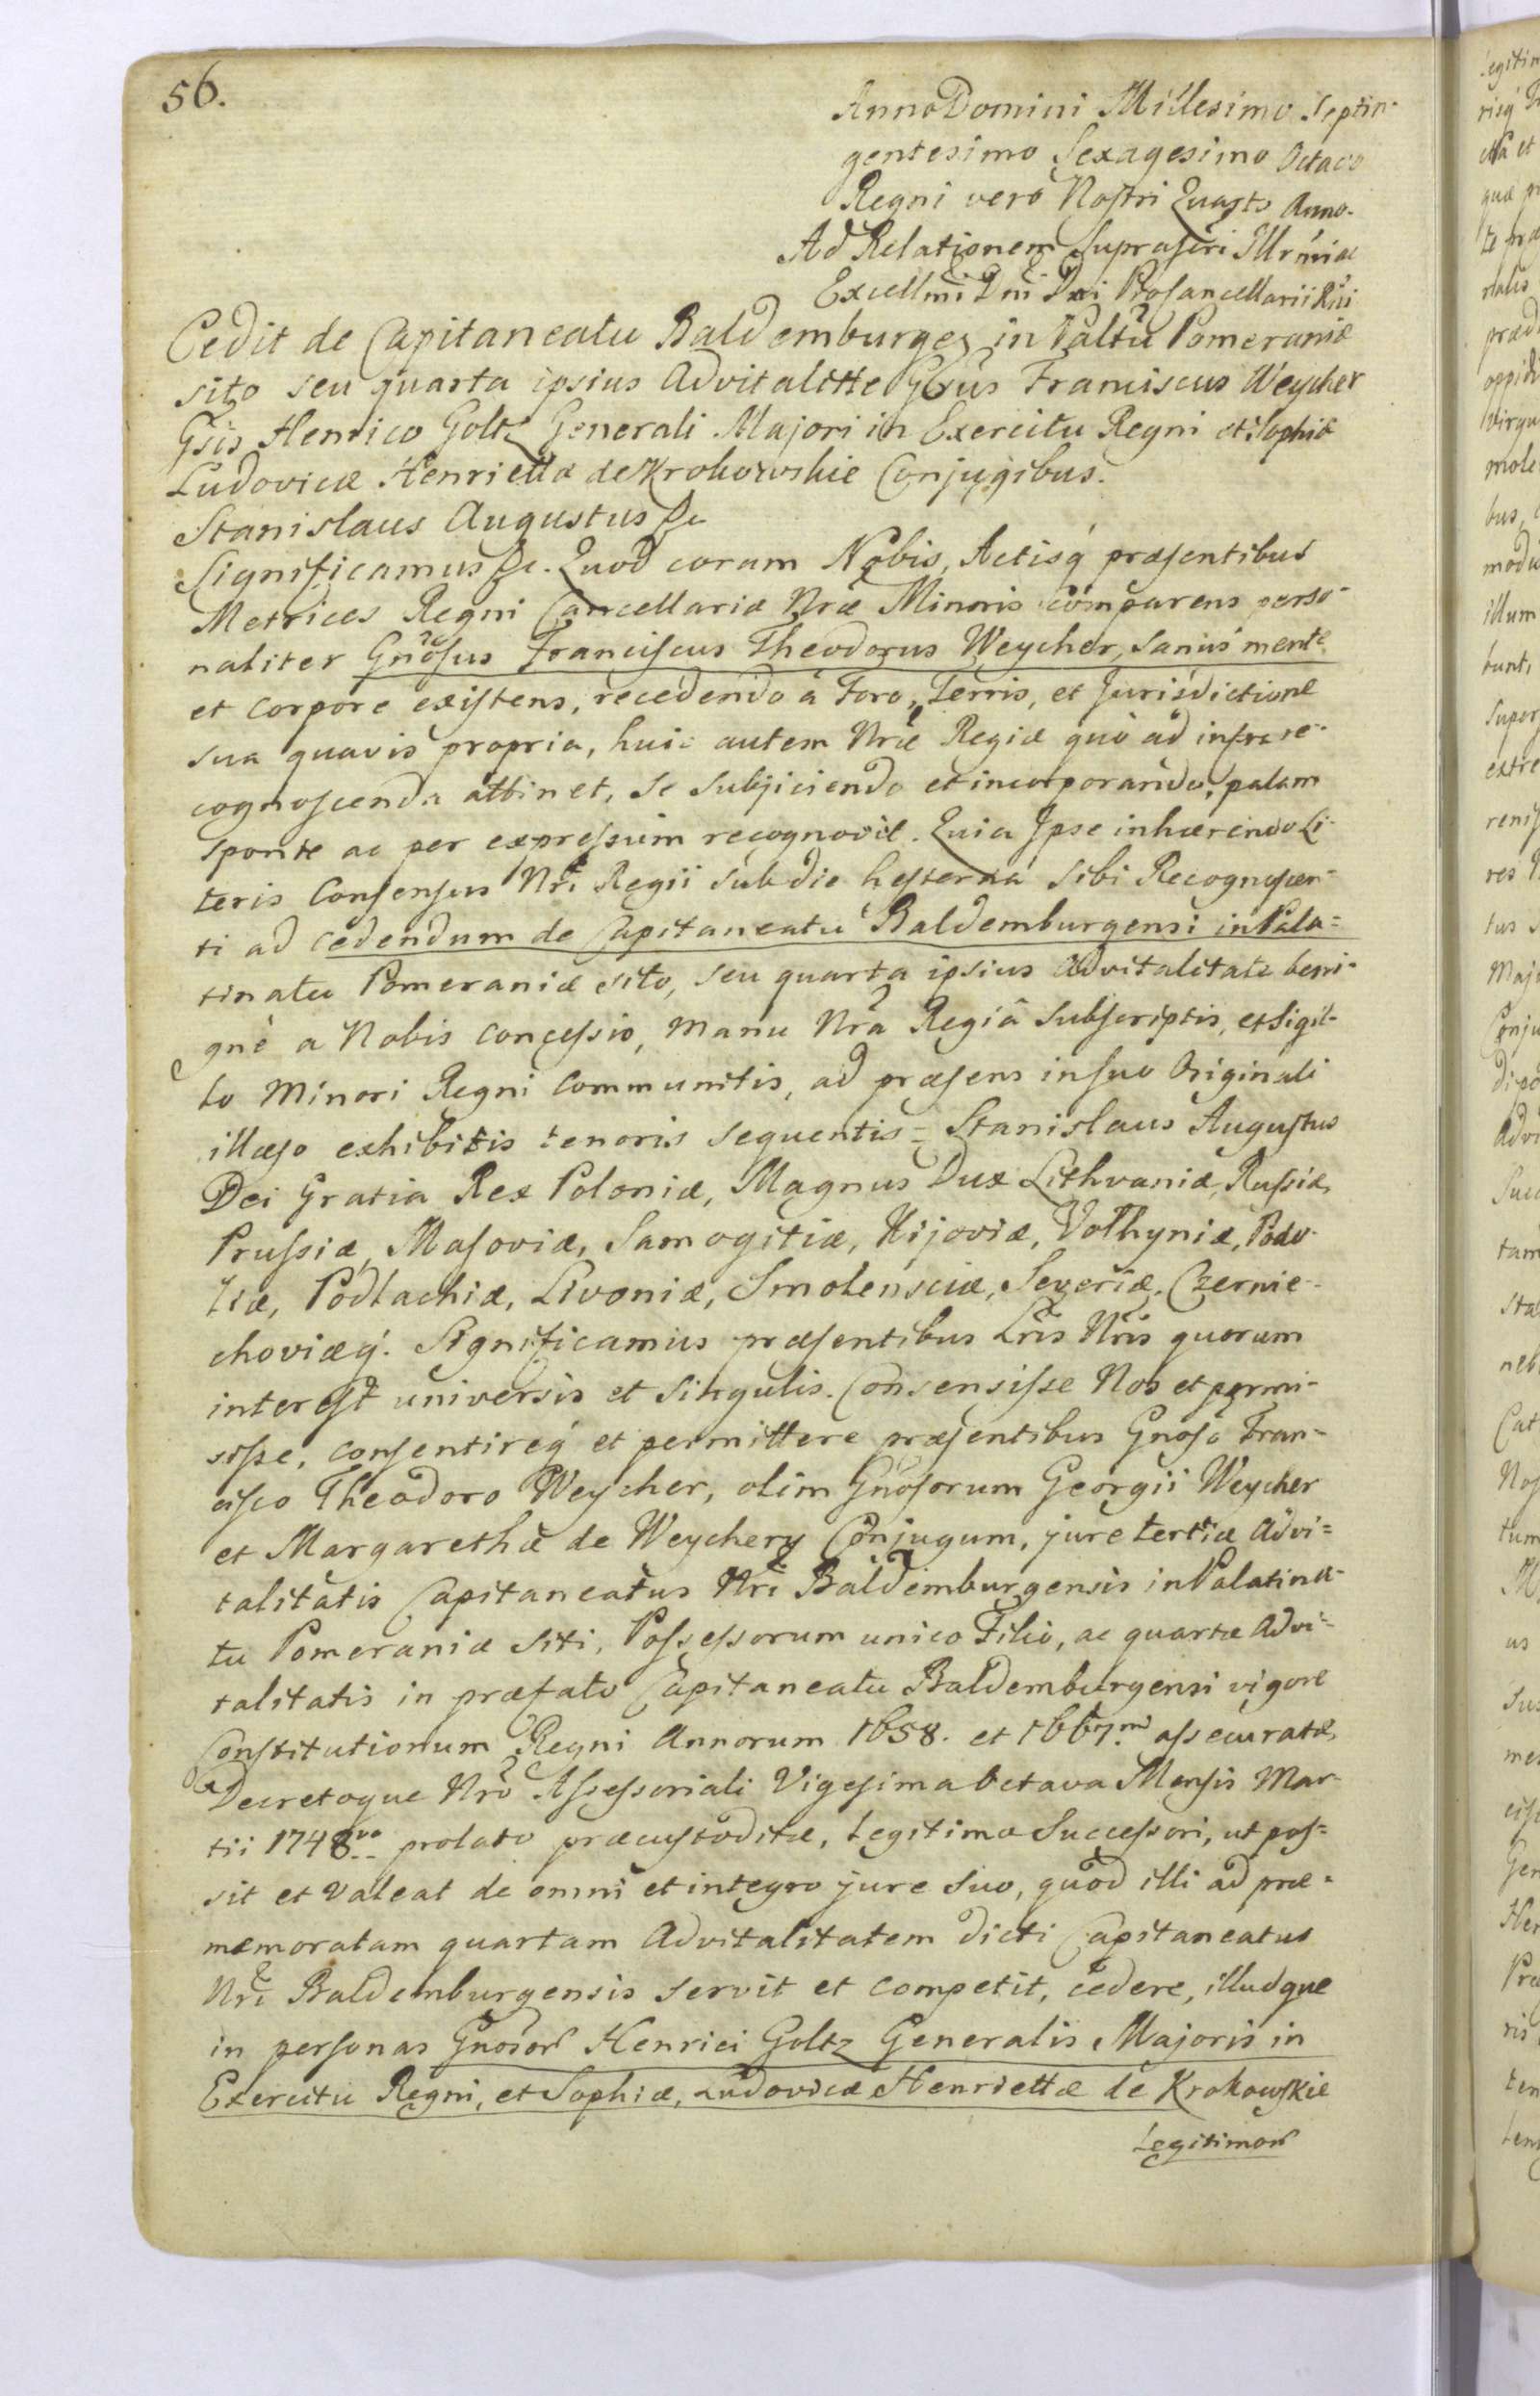 56.
Anno Domini Millesimo Septin-
gentesimo Sexagesimo Octavo
Regni vero Nostri Quarto Anno.
Ad Relationem suprascri Illrmi ac
Excellmi Dni Dni Procancellarii Rni
Cedit de Capitaneatu Baldemburgeñ in Paltu Pomeraniæ
sito seu quarta ipsius Advitalitte Gsus Franciscus Weycher
Gsis Henrico Goltz Generali Majori in Exercitu Regni et Sophiæ
Ludovicæ Henriettæ de Krokowskie Conjugibus.
Stanislaus Augustus &c
Significamus &c. Quod coram Nobis, Actisq́ præsentibus
Metrices Regni Cancellariæ Nræ Minoris comparens perso-
naliter Gnosus Franciscus Theodorus Weycher, sanus mente
et corpore existens, recedendo à Foro, Terris, et Jurisdictione
sua quavis propria, huic autem Nræ Regiæ quò ad infra re-
cognoscenda attinet, se subjiciendo et incorporando, palam
sponte ac per expressum recognovit. Quia Ipse inhærendo Li-
teris Consensus Nri Regii sub die hesterna sibi Recognoscen-
ti ad cedendum de Capitaneatu Baldemburgensi in Pala-
tinatu Pomeraniæ sito, seu quarta ipsius Advitalitate beni-
gnè a Nobis concessis, manu Nra Regiâ subscriptis, et Sigil-
lo Minori Regni communitis, ad præsens in suo Originali
illæso exhibitis tenoris sequentis = Stanislaus Augustus
Dei Gratia Rex Poloniæ, Magnus Dux Lithvaniæ, Russiæ,
Prussiæ, Masoviæ, Samogitiæ, Kijoviæ, Volhyniæ, Podo-
liæ, Podlachiæ, Livoniæ, Smolensciæ, Severiæ, Czernie-
choviæq́. Significamus præsentibus Lris Nris quorum
interest universis et singulis. Consensisse Nos et permi-
sisse, consentireq́ et permittere præsentibus Gnoso Fran-
cisco Theodoro Weycher, olim Gnosorum Georgii Weycher
et Margarethæ de Weychery Conjugum, jure tertiæ Advi-
talitatis Capitaneatus Nri Baldemburgensis in Palatina-
tu Pomeraniæ siti, Possessorum unico Filio, ac quartæ Advi-
talitatis in præfato Capitaneatu Baldemburgensi vigore
Constitutionum Regni Annorum 1658. et 1667mi assecuratæ,
Decretoque Nro Assessoriali Vigesima Octava Mensis Mar-
tii 1748vo prolato præcustoditæ, legitimo Successori, ut pos-
sit et valeat de omni et integro jure suo, quod illi ad præ-
memoratam quartam Advitalitatem dicti Capitaneatus
Nri Baldemburgensis servit et competit, cedere, illudque
in personas Gnosor Henrici Goltz Generalis Majoris in
Exercitu Regni, et Sophiæ, Ludovicæ Henriettæ de Krokowskie
Legitimor